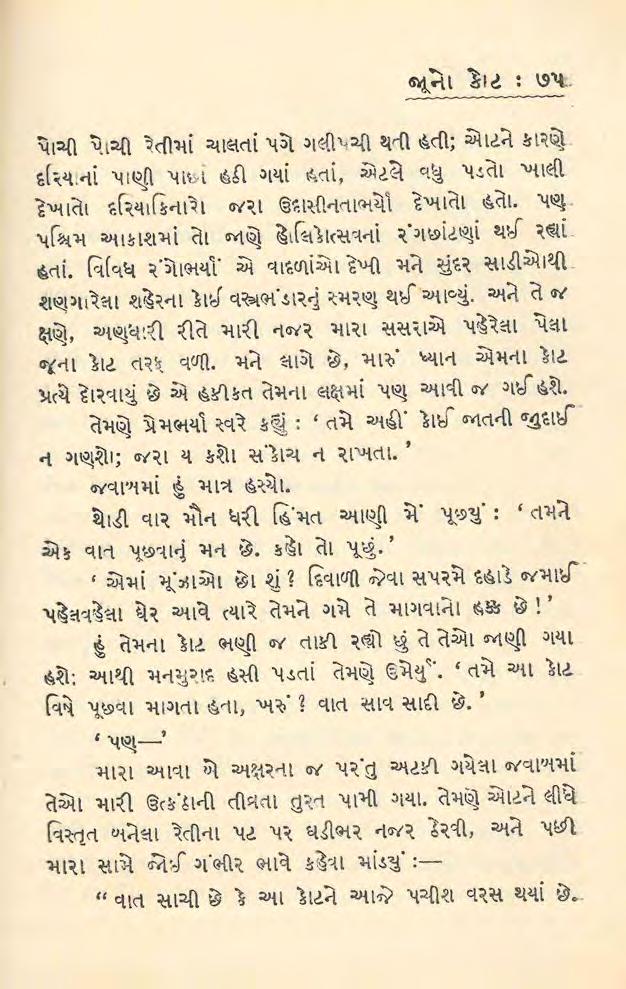 જૂનો કોટ : ૭૫
પોચી પોચી રેતીમાં ચાલતાં પગે ગલીપચી થતી હતી; ઓટને કારણે
દરિયાનાં પાણી પાછાં હઠી ગયાં હતાં, એટલે વધુ પડતો ખાલી
દેખાતો દરિયાકિનારો જરા ઉદાસીનતાભર્યો દેખાતો હતો. પણ
પશ્ચિમ આકાશમાં તો જાણે હોલિકોત્સવનાં રંગછાંટણાં થઈ રહ્યાં
હતાં. વિવિધ રંગોભર્યાં એ વાદળાંઓ દેખી મને સુંદર સાડીઓથી
શણગારેલા શહેરના કોઈ વસ્ત્રભંડારનું સ્મરણ થઈ આવ્યું. અને તે જ
ક્ષણે, અણધારી રીતે મારી નજર મારા સસરાએ પહેરેલા પેલા
જૂના કોટ તરફ વળી. મને લાગે છે, મારું ધ્યાન એમના કોટ
પ્રત્યે દોરવાયું છે એ હકીકત તેમના લક્ષમાં પણ આવી જ ગઈ હશે.
તેમણે પ્રેમભર્યા સ્વરે કહ્યું : ‘ તમે અહીં કોઈ જાતની જુદાઈ
ન ગણશો; જરા ય કશો સંકોચ ન રાખતા. ’
જવાબમાં હું માત્ર હસ્યો.
થોડી વાર મૌન ધરી હિંમત આણી મેં પૂછ્યું : ‘ તમને
એક વાત પૂછવાનું મન છે. કહો તો પૂછું. ’
‘ એમાં મૂંઝાઓ છો શું ? દિવાળી જેવા સપરમે દહાડે જમાઈ
પહેલવહેલા ઘેર આવે ત્યારે તેમને ગમે તે માગવાનો હક્ક છે ! ’
હું તેમના કોટ ભણી જ તાકી રહ્યો છું તે તેઓ જાણી ગયા
હશે: આથી મનમુરાદ હસી પડતાં તેમણે ઉમેર્યું. ‘ તમે આ કોટ
વિષે પૂછવા માગતા હતા, ખરું ? વાત સાવ સાદી છે. ’
‘ પણ—’
મારા આવા બે અક્ષરના જ પરંતુ અટકી ગયેલા જવાબમાં
તેઓ મારી ઉત્કંઠાની તીવ્રતા તુરત પામી ગયા. તેમણે ઓટને લીધે
વિસ્તૃત બનેલા રેતીના પટ પર ઘડીભર નજર ઠેરવી, અને પછી
મારા સામે જોઈ ગંભીર ભાવે કહેવા માંડ્યું :—
“ વાત સાચી છે કે આ કોટને આજે પચીશ વરસ થયાં છે.